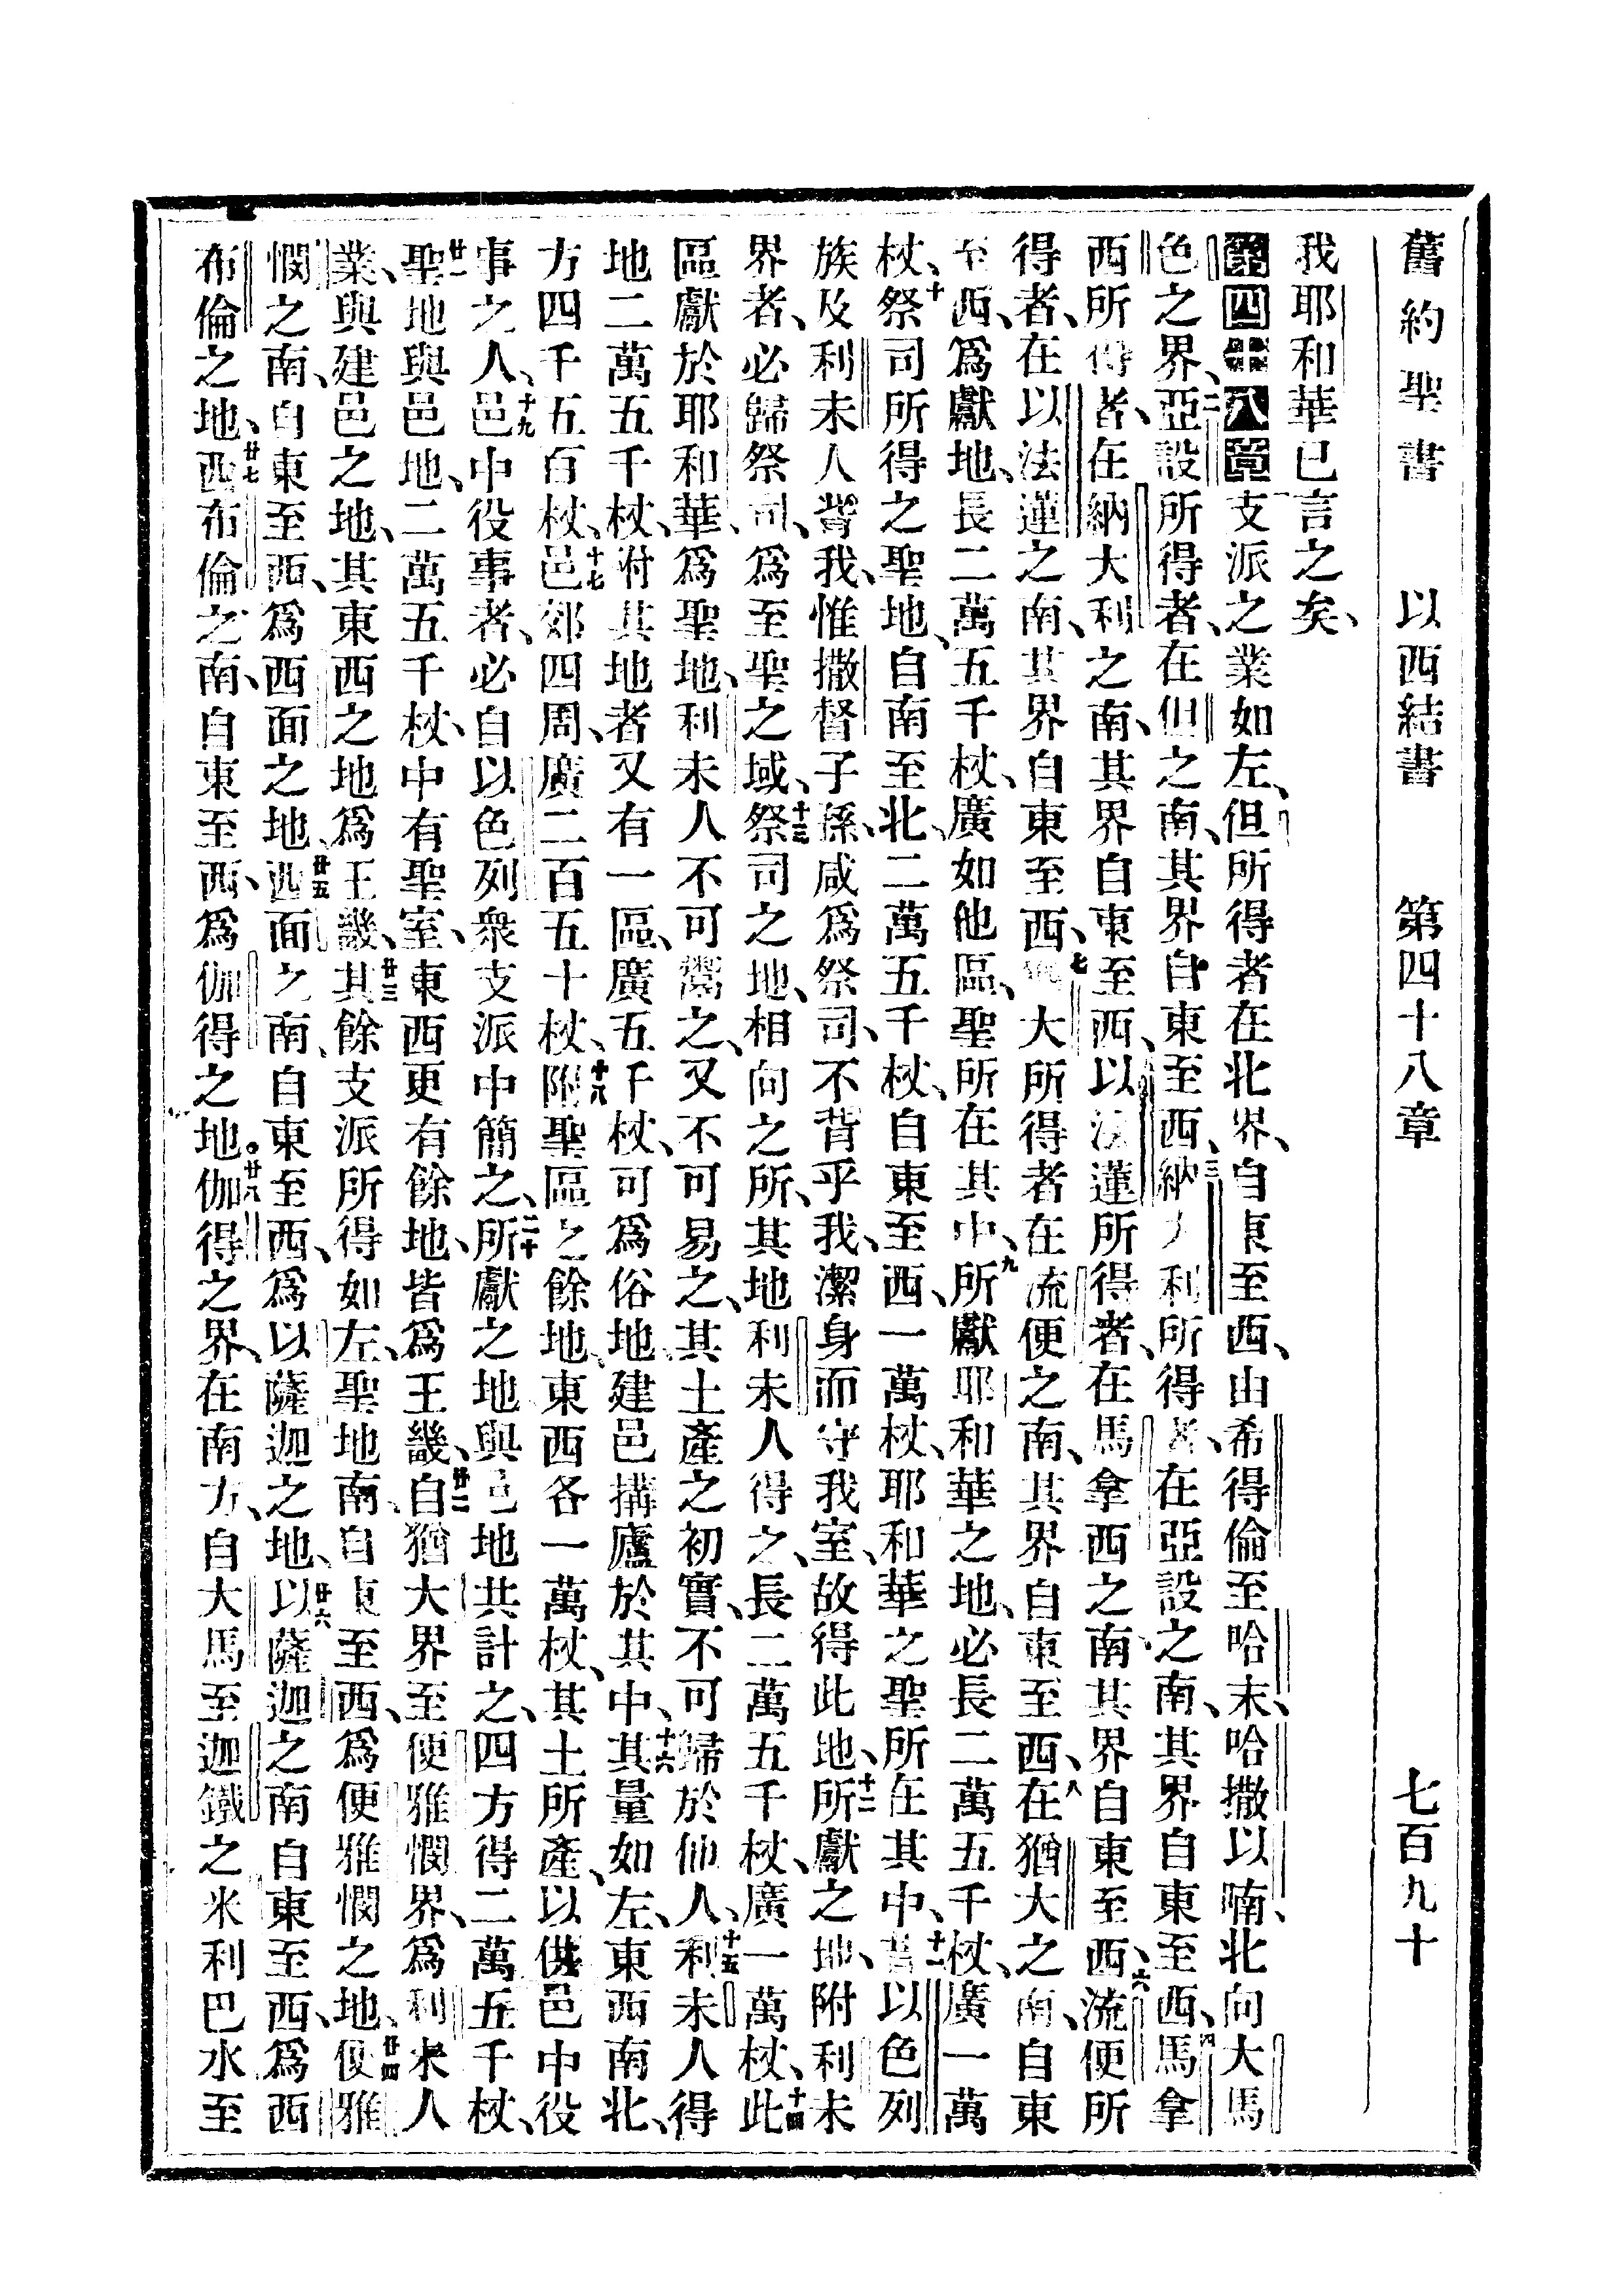 舊約聖書　以西結書　第四十八章　七百九十
我耶和華已言之矣、
第四十八章 支派之業如左、但所得者在北界、自東至西、由希得倫至哈末、哈撒以喃、北向大馬
色之界、二亞設所得者、在但之南、其界自東至西、三納大利所得者、在亞設之南、其界自東至西、四馬拿
西所得者、在納大利之南、其界自東至西、以法蓮所得者、在馬拿西之南、其界自東至西、六流便所
得者、在以法蓮之南、其界自東至西、七猶大所得者在流便之南、其界自東至西、八在猶大之南、自東
至西、爲獻地、長二萬五千杖、廣如他區、聖所在其中、九所獻耶和華之地、必長二萬五千杖、廣一萬
杖、十祭司所得之聖地、自南至北、二萬五千杖、自東至西、一萬杖、耶和華之聖所在其中、十一昔以色列
族及利未人背我、惟撒督子孫、咸爲祭司、不背乎我、潔身而守我室、故得此地、十二所獻之地、附利未
界者、必歸祭司、爲至聖之域、十三祭司之地、相向之所、其地利未人得之、長二萬五千杖、廣一萬杖、十四此
區獻於耶和華、爲聖地、利未人不可鬻之、又不可易之、其土產之初實、不可歸於他人、十五利未人得
地二萬五千杖、附其地者又有一區、廣五千杖、可爲俗地、建邑搆廬於其中、十六其量如左、東西南北、
方四千五百杖、十七邑郊四周、廣二百五十杖、十八附聖區之餘地、東西各一萬杖、其土所產、以供邑中役
事之人、十九邑中役事者、必自以色列衆支派中簡之、二十所獻之地與邑地共計之、四方得二萬五千杖、
廿一聖地與邑地、二萬五千杖、中有聖室、東西更有餘地、皆爲王畿、廿二自猶大界至便雅憫界、爲利未人
業、與建邑之地、其東西之地爲王畿、廿三其餘支派所得如左、聖地南、自東至西、爲便雅憫之地、廿四便雅
憫之南、自東至西、爲西面之地、廿五西面之南、自東至西、爲以薩迦之地、廿六以薩迦之南自東至西、爲西
布倫之地、廿七西布倫之南、自東至西、爲伽得之地。廿八伽得之界、在南方、自大馬至迦鐵之米利巴水至